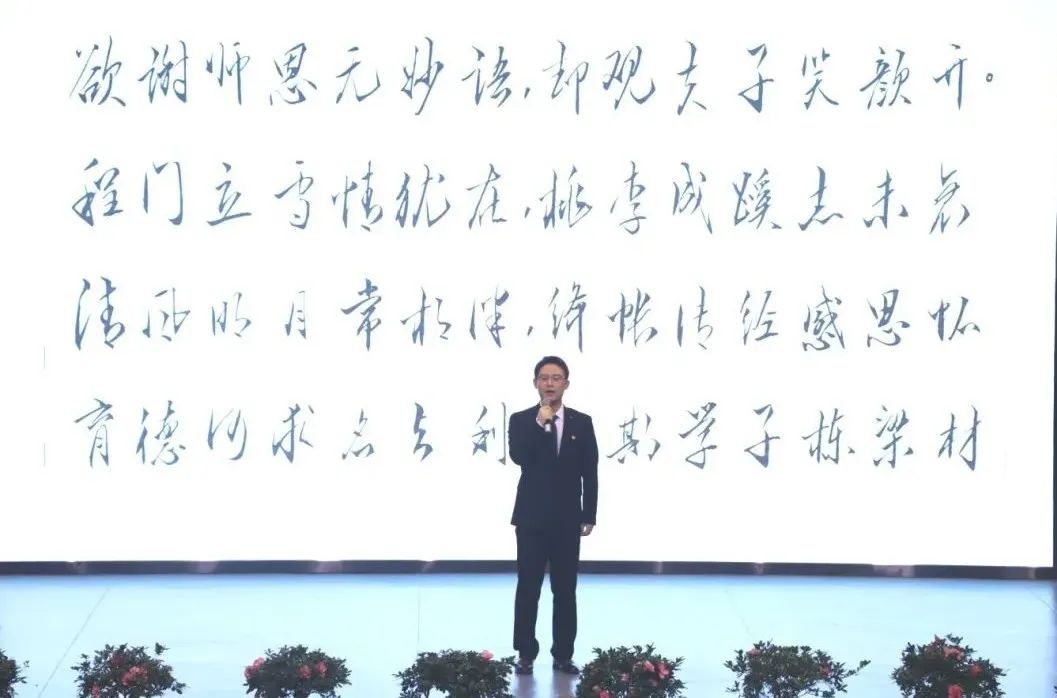 欲谢师恩无妙语,却观夫子笑颜开。
程门立雪情犹在,桃李成蹊志未衰
清风明月常相伴,绛帐传经感恩怀
育德何求名与利 期学子栋梁材